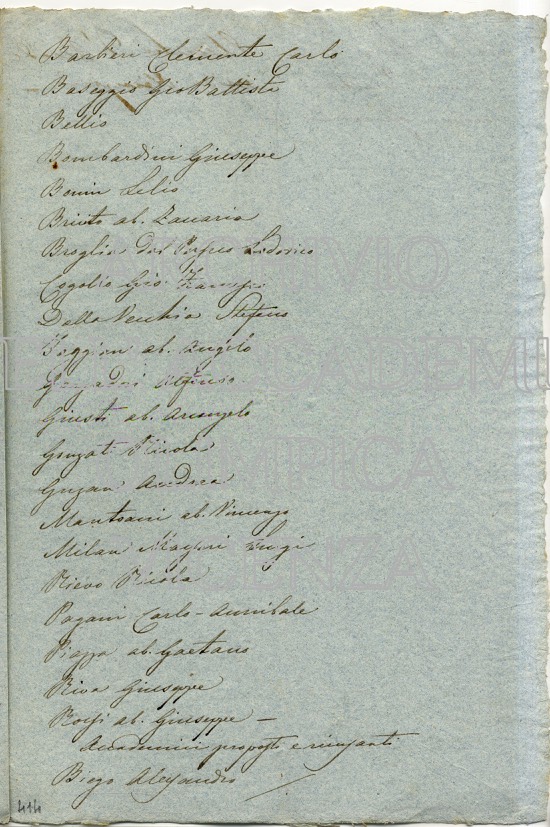 Barbieri Clemente Carlo
Baseggio Gio Battista
Bellio
Bombardini Giuseppe
Bonin Lelio
Brivto ab. Zaccaria
Broglia dal Lodovico
Cogolo Gio. Francesco
Dalla Vecchia Stefano
Foggion ab. Angelo
Giusti ab. Arcangelo
Gonzati Nicola
Guzan Andrea
Mantoani ab. Vincenzo
Milan Luigi
Nievo Nicola
Pagani Carlo-Annibale
Piazza ab. Gaetano
Riva Giuseppe
Rossi ab. Giuseppe –
Accademici proposti e rinunzianti
Biego Alessandro
414
ARCHIVIO
ACCADEMI
OLIMPICA
VICENZA